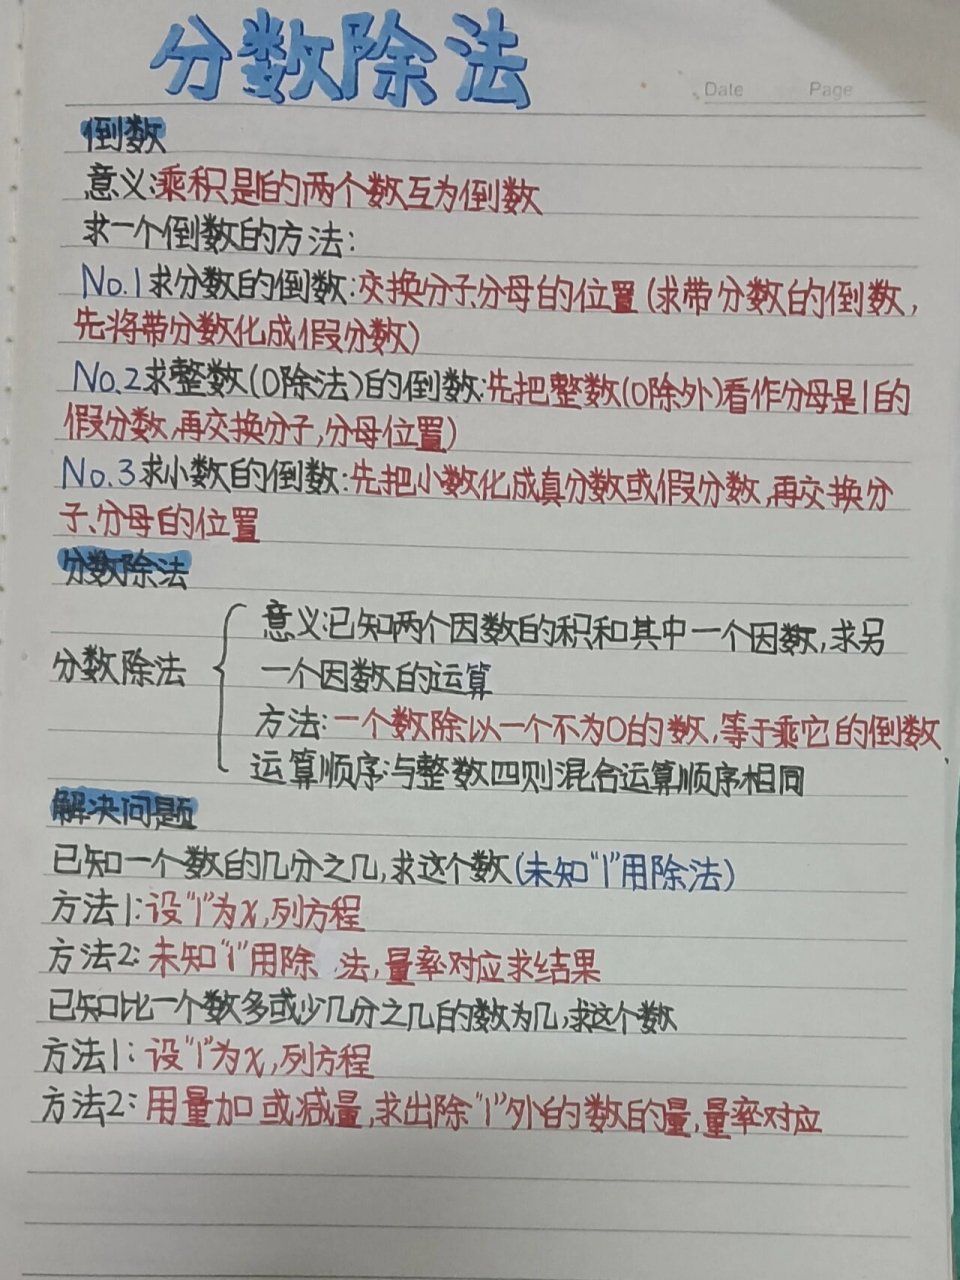 分数除法
Date Page
倒数
意义:乘积是1的两个数互为倒数
求一个倒数的方法:
No.1求分数的倒数:交换分子分母的位置(求带分数的倒数,
先将带分数化成假分数)
No.2求整数(0除法)的倒数:先把整数(0除外)看作分母是1的
假分数,再交换分子,分母位置)
No.3求小数的倒数:先把小数化成真分数或假分数,再交换分
子、分母的位置
分数除法
意义:已知两个因数的积和其中一个因数,求另
分数除法
一个因数的运算
方法:一个数除以一个不为0的数,等于乘它的倒数
运算顺序:与整数四则混合运算顺序相同
解决问题
已知一个数的几分之几,求这个数(未知“1”用除法)
方法1:设“1”为x,列方程
方法2:未知“1”用除 法,量率对应求结果
已知比一个数多或少几分之几的数为几,求这个数
方法1:设“1”为x,列方程
方法2:用量加或减量,求出除“1”外的数的量,量率对应